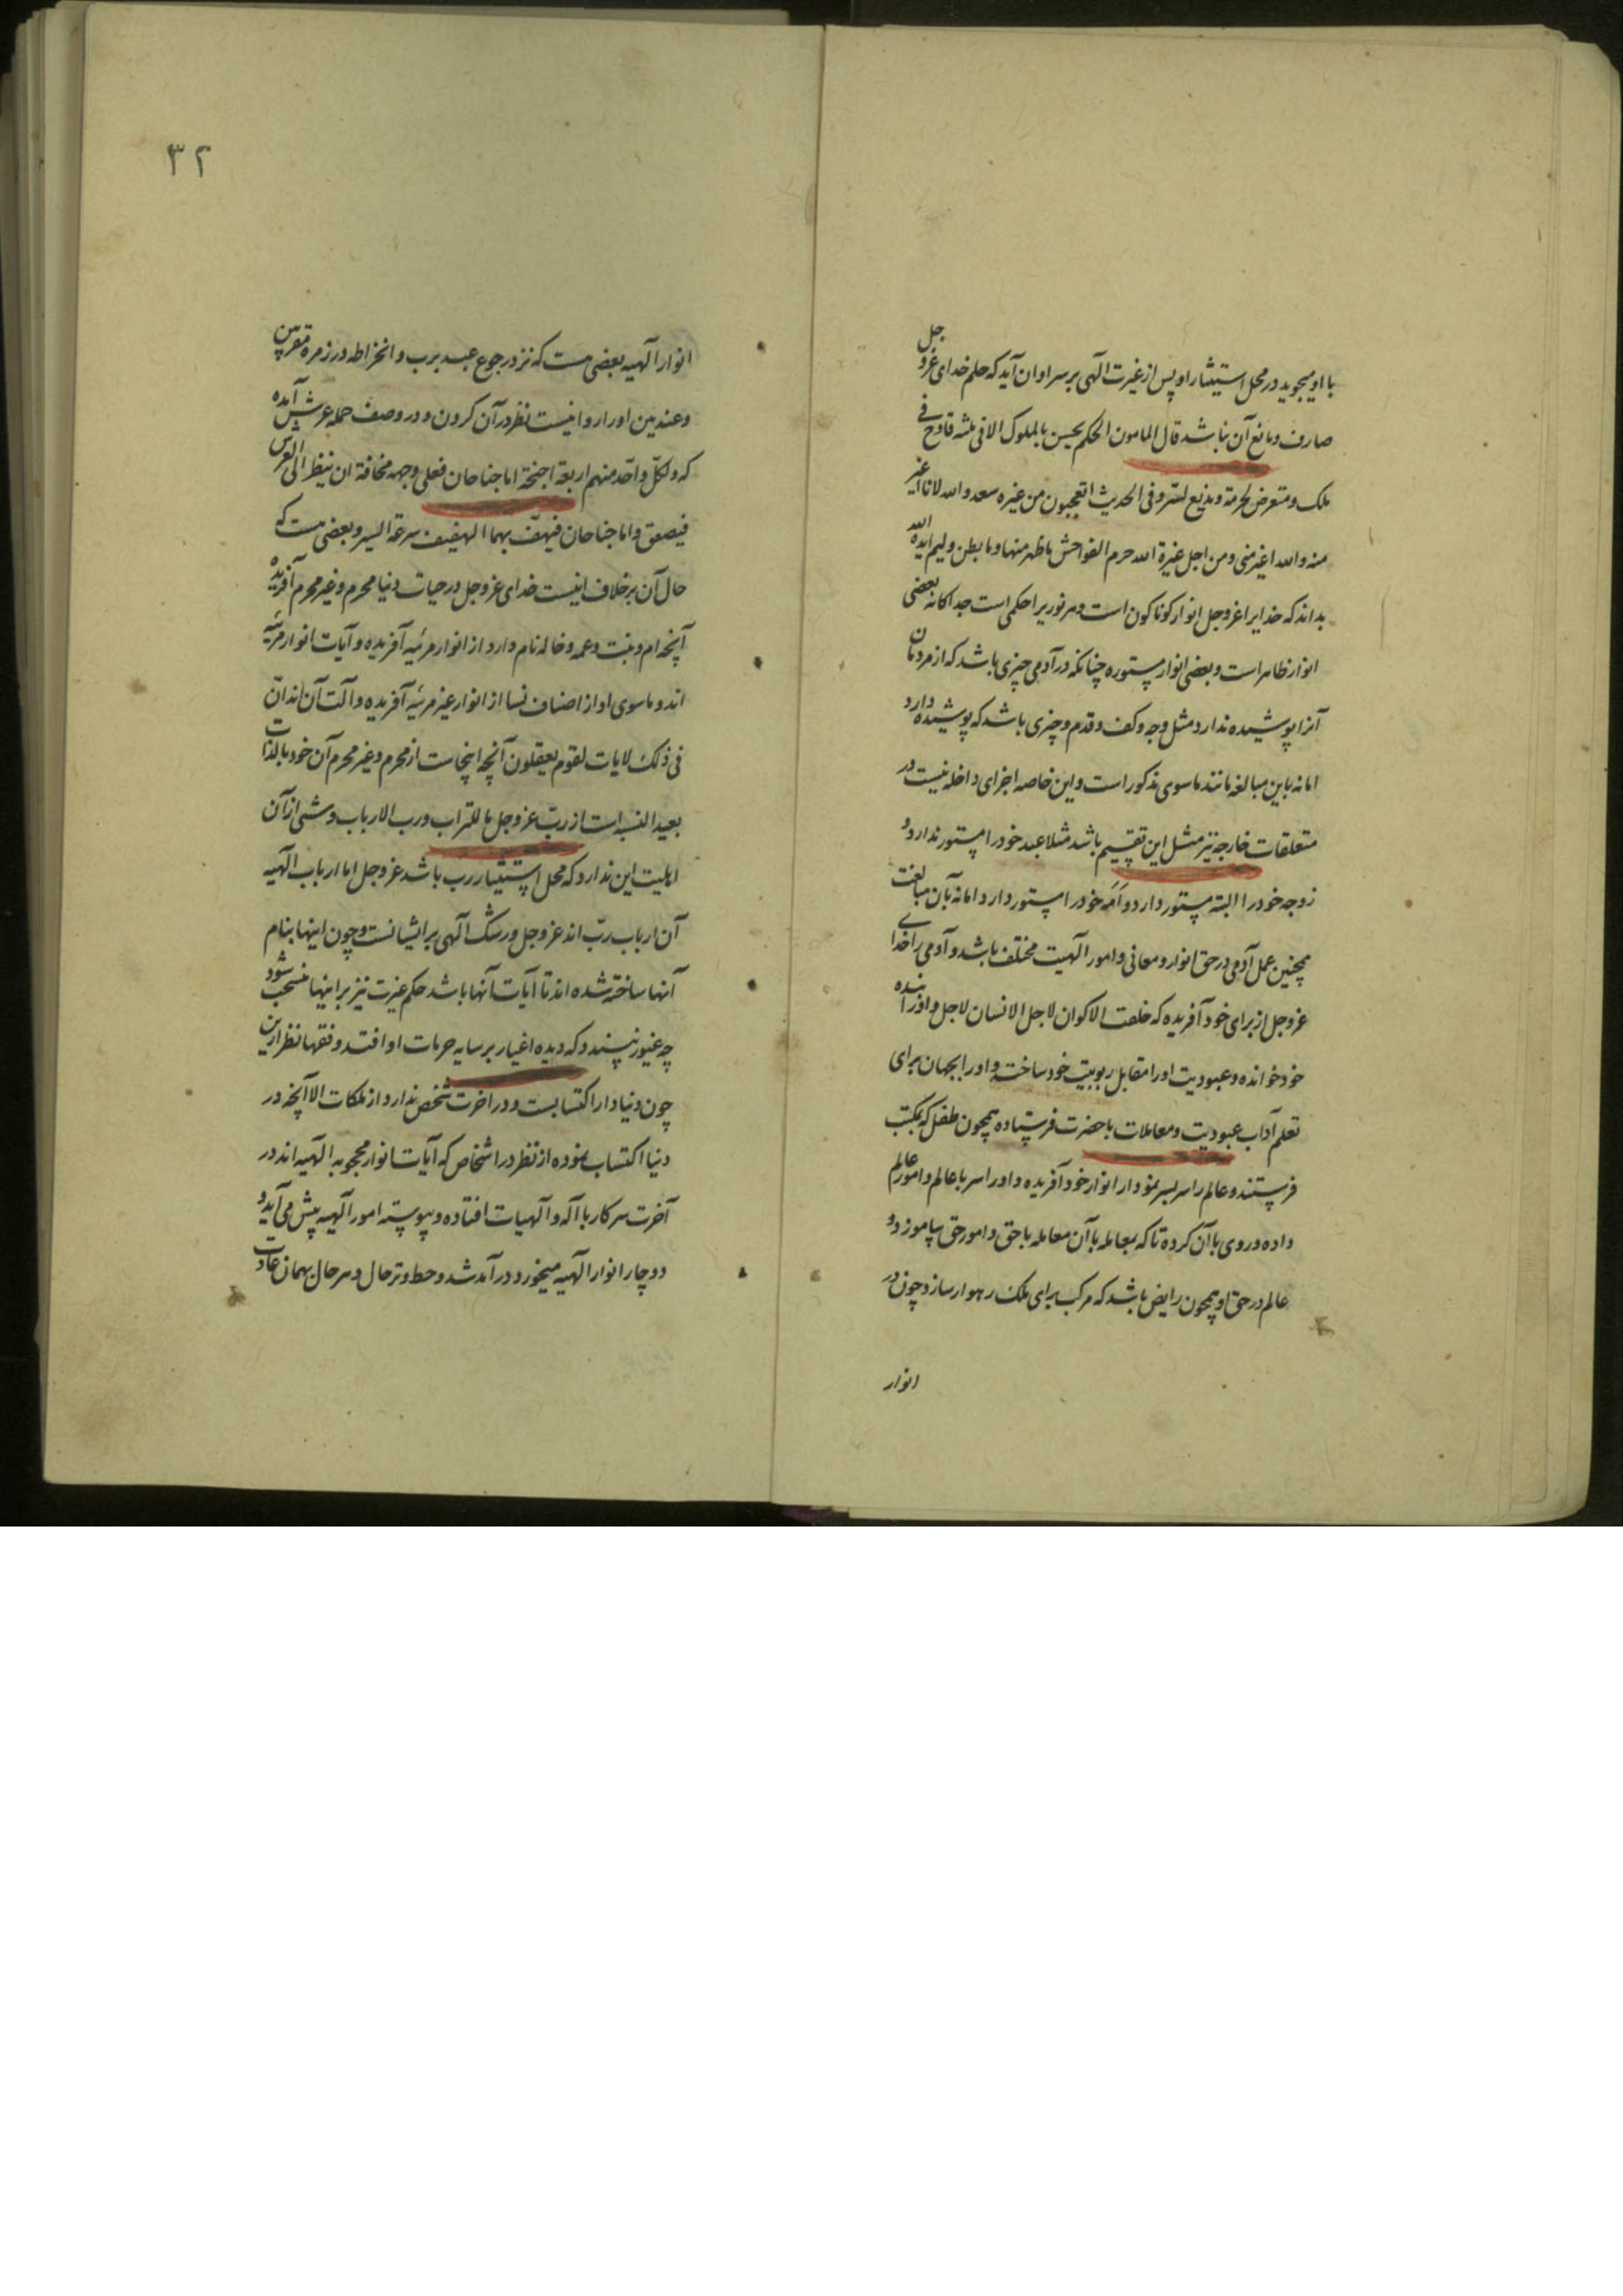 با او میجوید در محل استیثار او پس از غیرت آلهی بر سر او ان آید که حلم خدای عز و جل
صارف و مانع آن نباشد قال المامون الحکم یحسن بالملوک الا فی ثلثه قادح فی
ملک و متعرض لحرمة و مذیع لسر و فی الحدیث اتعجبون من غیرة سعد والله لانا اغیر
منه والله اغیر منی و من اجل غیرة الله حرم الفواحش ما ظهر منها و ما بطن ولیم ایده الله
بداند که خدایرا عز و جل انوار کوناکون است و هر نوریرا حکمی است جداکانه بعضی
انوار ظاهر است و بعضی انوار مستوره چنانکه در آدمی چیزی باشد که از مردمان
آنرا پوشیده ندارد مثل وجه و کف و قدم و چیزی باشد که پوشیده دارد
اما نه باین مبالغه مانند ماسوی مذکور است و این خاصه اجزای داخله نیست در
متعلقات خارجه نیز مثل این تقسیم باشد مثلا عبد خود را مستور ندارد و
زوجه خود را البته مستور دارد و اَمَه خود را مستور دارد اما نه بآن مبالغت
همچنین عمل آدمی در حق انوار و معانی و امور آلهیت مختلف باشد و آدمی را خدای
عز و جل از برای خود آفریده که خلقت الاکوان لاجل الانسان لاجل و او را بنده
خود خوانده و عبودیت او را مقابل ربوبیت خود ساخته و او را بجهان برای
تعلم آداب عبودیت و معاملات با حضرت فرستاده همچون طفل که بمکتب
فرستند و عالم را سر بسر نمودار انوار خود آفریده و او را سر با عالم و امور عالم
داده و روی با آن کرده تا که بمعامله با آن معامله با حق و امور حق بیاموزد و
عالم در حق او همچون رایض باشد که مرکب برای ملک رهوار سازد چون در
انوار
۳۲
انوار آلهیه بعضی هست که نزد رجوع عبد برب و انخراطه در زمره مقربین
و عندیین او را روا نیست نظر در آن کردن و در وصف حمله عرش آمده
که و لکلّ واحد منهم اربعة اجنحة اما جناحان فعلی وجهه مخافة ان ینظر الی العرش
فیصعق و اما جناحان فیهفّ بهما الهفیف سرعة السیر و بعضی هست که
حال آن بر خلاف اینست خدای عز و جل در حیات دنیا محرم و غیر محرم آفریده
آنچه ام و بنت و عمه و خاله نام دارد از انوار مرئیه آفریده و آیات انوار مرئیه
اند و ماسوی او از اصناف نسا از انوار غیر مرئیه آفریده و آلت آن اند انّ
فی ذلک لایات لقوم یعقلون آنچه اینجاست از محرم و غیر محرم آن خود بالذات
بعید النسبه است از ربّ عز و جل ما للتراب و رب الارباب و شئی از آن
اهلیت این ندارد که محل استیثار رب باشد عز و جل اما ارباب آلهیه
آن ارباب ربّ اند عز و جل و رشک آلهی بر ایشانست و چون اینها بنام
آنها ساخته شده اند تا آیات آنها باشد حکم غیرت نیز بر اینها منسحب شود
چه غیور نپسندد که دیده اغیار بر سایه حرمات او افتد و فقها نظر ازین
چون دنیا دار اکتسابست و در اخرت شخص ندارد از ملکات الا آنچه در
دنیا اکتساب نموده از نظر در اشخاص که آیات انوار محجوبه آلهیه اند در
آخرت سر کار با آله و آلهیات افتاده و پیوسته امور آلهیه پیش می آید و
دوچار انوار آلهیه میخورد در آمد شد و حط و ترحال و هر حال بهمان عادت